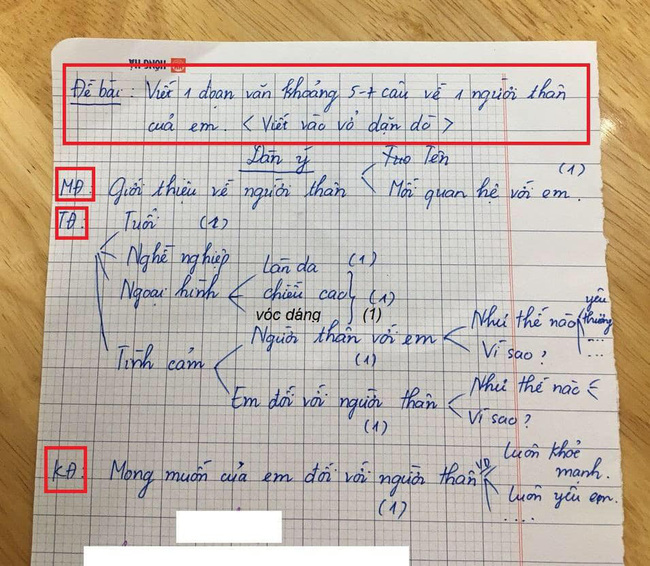 HỒNG HÀ
Đề bài: Viết 1 đoạn văn khoảng 5-7 câu về 1 người thân
của em. < Viết vào vở dặn dò >
Dàn ý
Tên
(1)
MĐ: Giới thiệu về người thân < Mối quan hệ với em.
TĐ: Tuổi (1)
Nghề nghiệp
Ngoại hình < Làn da (1)
chiều cao (1)
vóc dáng (1)
Tình cảm < Người thân với em < Như thế nào yêu thương ...
(1) Vì sao?
Em đối với người thân < Như thế nào <
(1) Vì sao?
KĐ: Mong muốn của em đối với người thân VD Luôn khoẻ mạnh.
(1) Luôn yêu em.
....